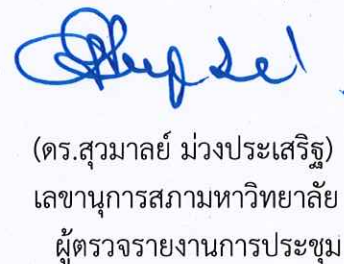 (ดร.สุวมาลย์ ม่วงประเสริฐ)
เลขานุการสภามหาวิทยาลัย
ผู้ตรวจรายงานการประชุม